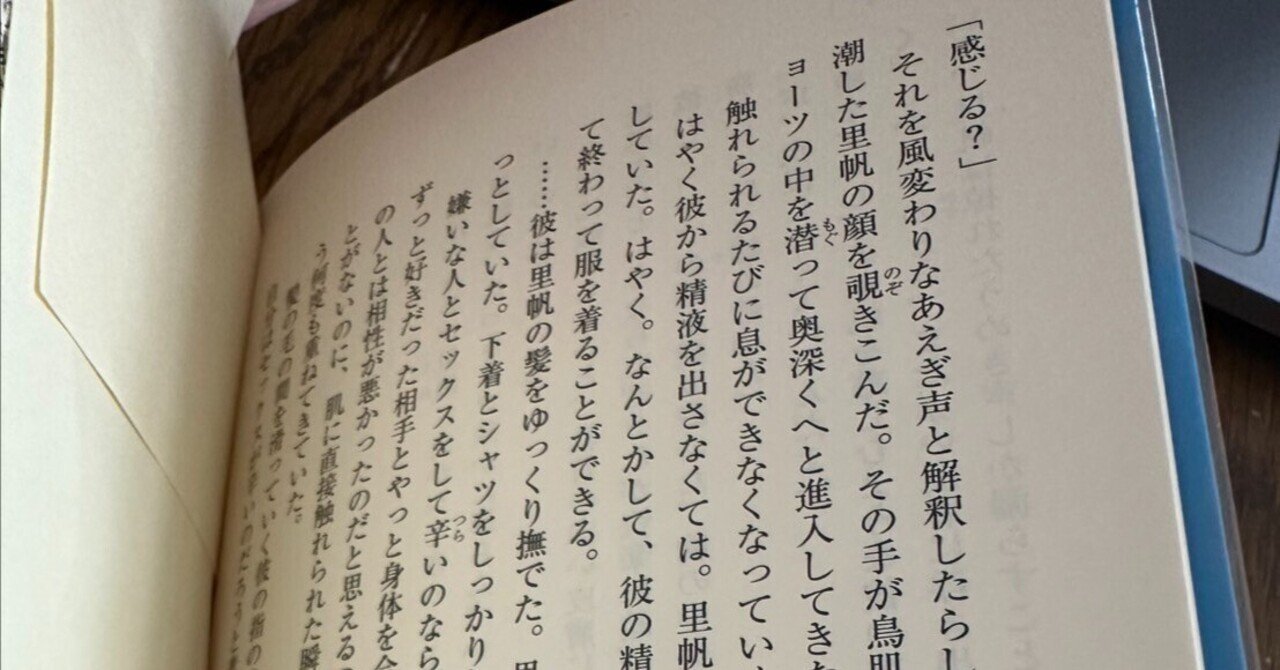 「感じる？」
それを風変わりなあえぎ声と解釈したらし
潮した里帆の顔を覗きこんだ。その手が鳥肌
ョーツの中を潜って奥深くへと進入してきた
触れられるたびに息ができなくなってい
はやく彼から精液を出さなくては。里帆
していた。はやく。なんとかして、彼の精
て終わって服を着ることができる。
……彼は里帆の髪をゆっくり撫でた。
っとしていた。下着とシャツをしっかり
嫌いな人とセックスをして辛いのなら
ずっと好きだった相手とやっと身体を
の人とは相性が悪かったのだと思える
とがないのに、肌に直接触れられた瞬
う何度も重ねてきていた。
髪の毛の間を滑っていく彼の指の